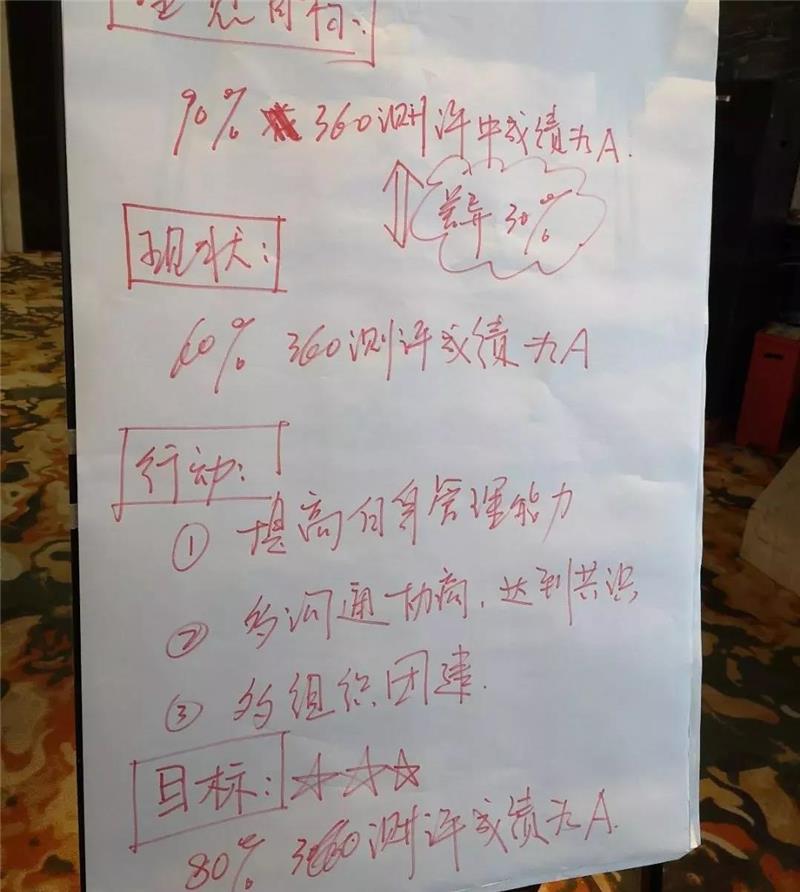 90% 360测评中成绩为A.
差异30%
现状:
60% 360测评成绩为A
行动:
① 提高自身管理能力
② 多沟通协商,达到共识
③ 多组织团建.
目标:☆☆☆
80% 360测评成绩为A.